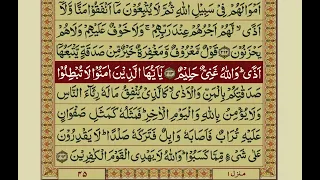 اَمْوَالَهُمْ فِیْ سَبِیْلِ اللّٰهِ ثُمَّ لَا یُتْبِعُوْنَ مَاۤ اَنْفَقُوْا مَنًّا وَّلَاۤ
اَذًی ۙ لَّهُمْ اَجْرُهُمْ عِنْدَ رَبِّهِمْ ۚ وَلَا خَوْفٌ عَلَیْهِمْ وَلَا هُمْ
یَحْزَنُوْنَ ﴿۲۶۲﴾ قَوْلٌ مَّعْرُوْفٌ وَّمَغْفِرَةٌ خَیْرٌ مِّنْ صَدَقَةٍ یَّتْبَعُهَاۤ
اَذًی ؕ وَاللّٰهُ غَنِیٌّ حَلِیْمٌ ﴿۲۶۳﴾ یٰۤاَیُّهَا الَّذِیْنَ اٰمَنُوْا لَا تُبْطِلُوْا
صَدَقٰتِكُمْ بِالْمَنِّ وَالْاَذٰی ۙ كَالَّذِیْ یُنْفِقُ مَالَهٗ رِئَآءَ النَّاسِ
وَلَا یُؤْمِنُ بِاللّٰهِ وَالْیَوْمِ الْاٰخِرِ ؕ فَمَثَلُهٗ كَمَثَلِ صَفْوَانٍ
عَلَیْهِ تُرَابٌ فَاَصَابَهٗ وَابِلٌ فَتَرَكَهٗ صَلْدًا ؕ لَا یَقْدِرُوْنَ
عَلٰی شَیْءٍ مِّمَّا كَسَبُوْا ؕ وَاللّٰهُ لَا یَهْدِی الْقَوْمَ الْكٰفِرِیْنَ ﴿۲۶۴﴾
منزل ۱ ۴۵